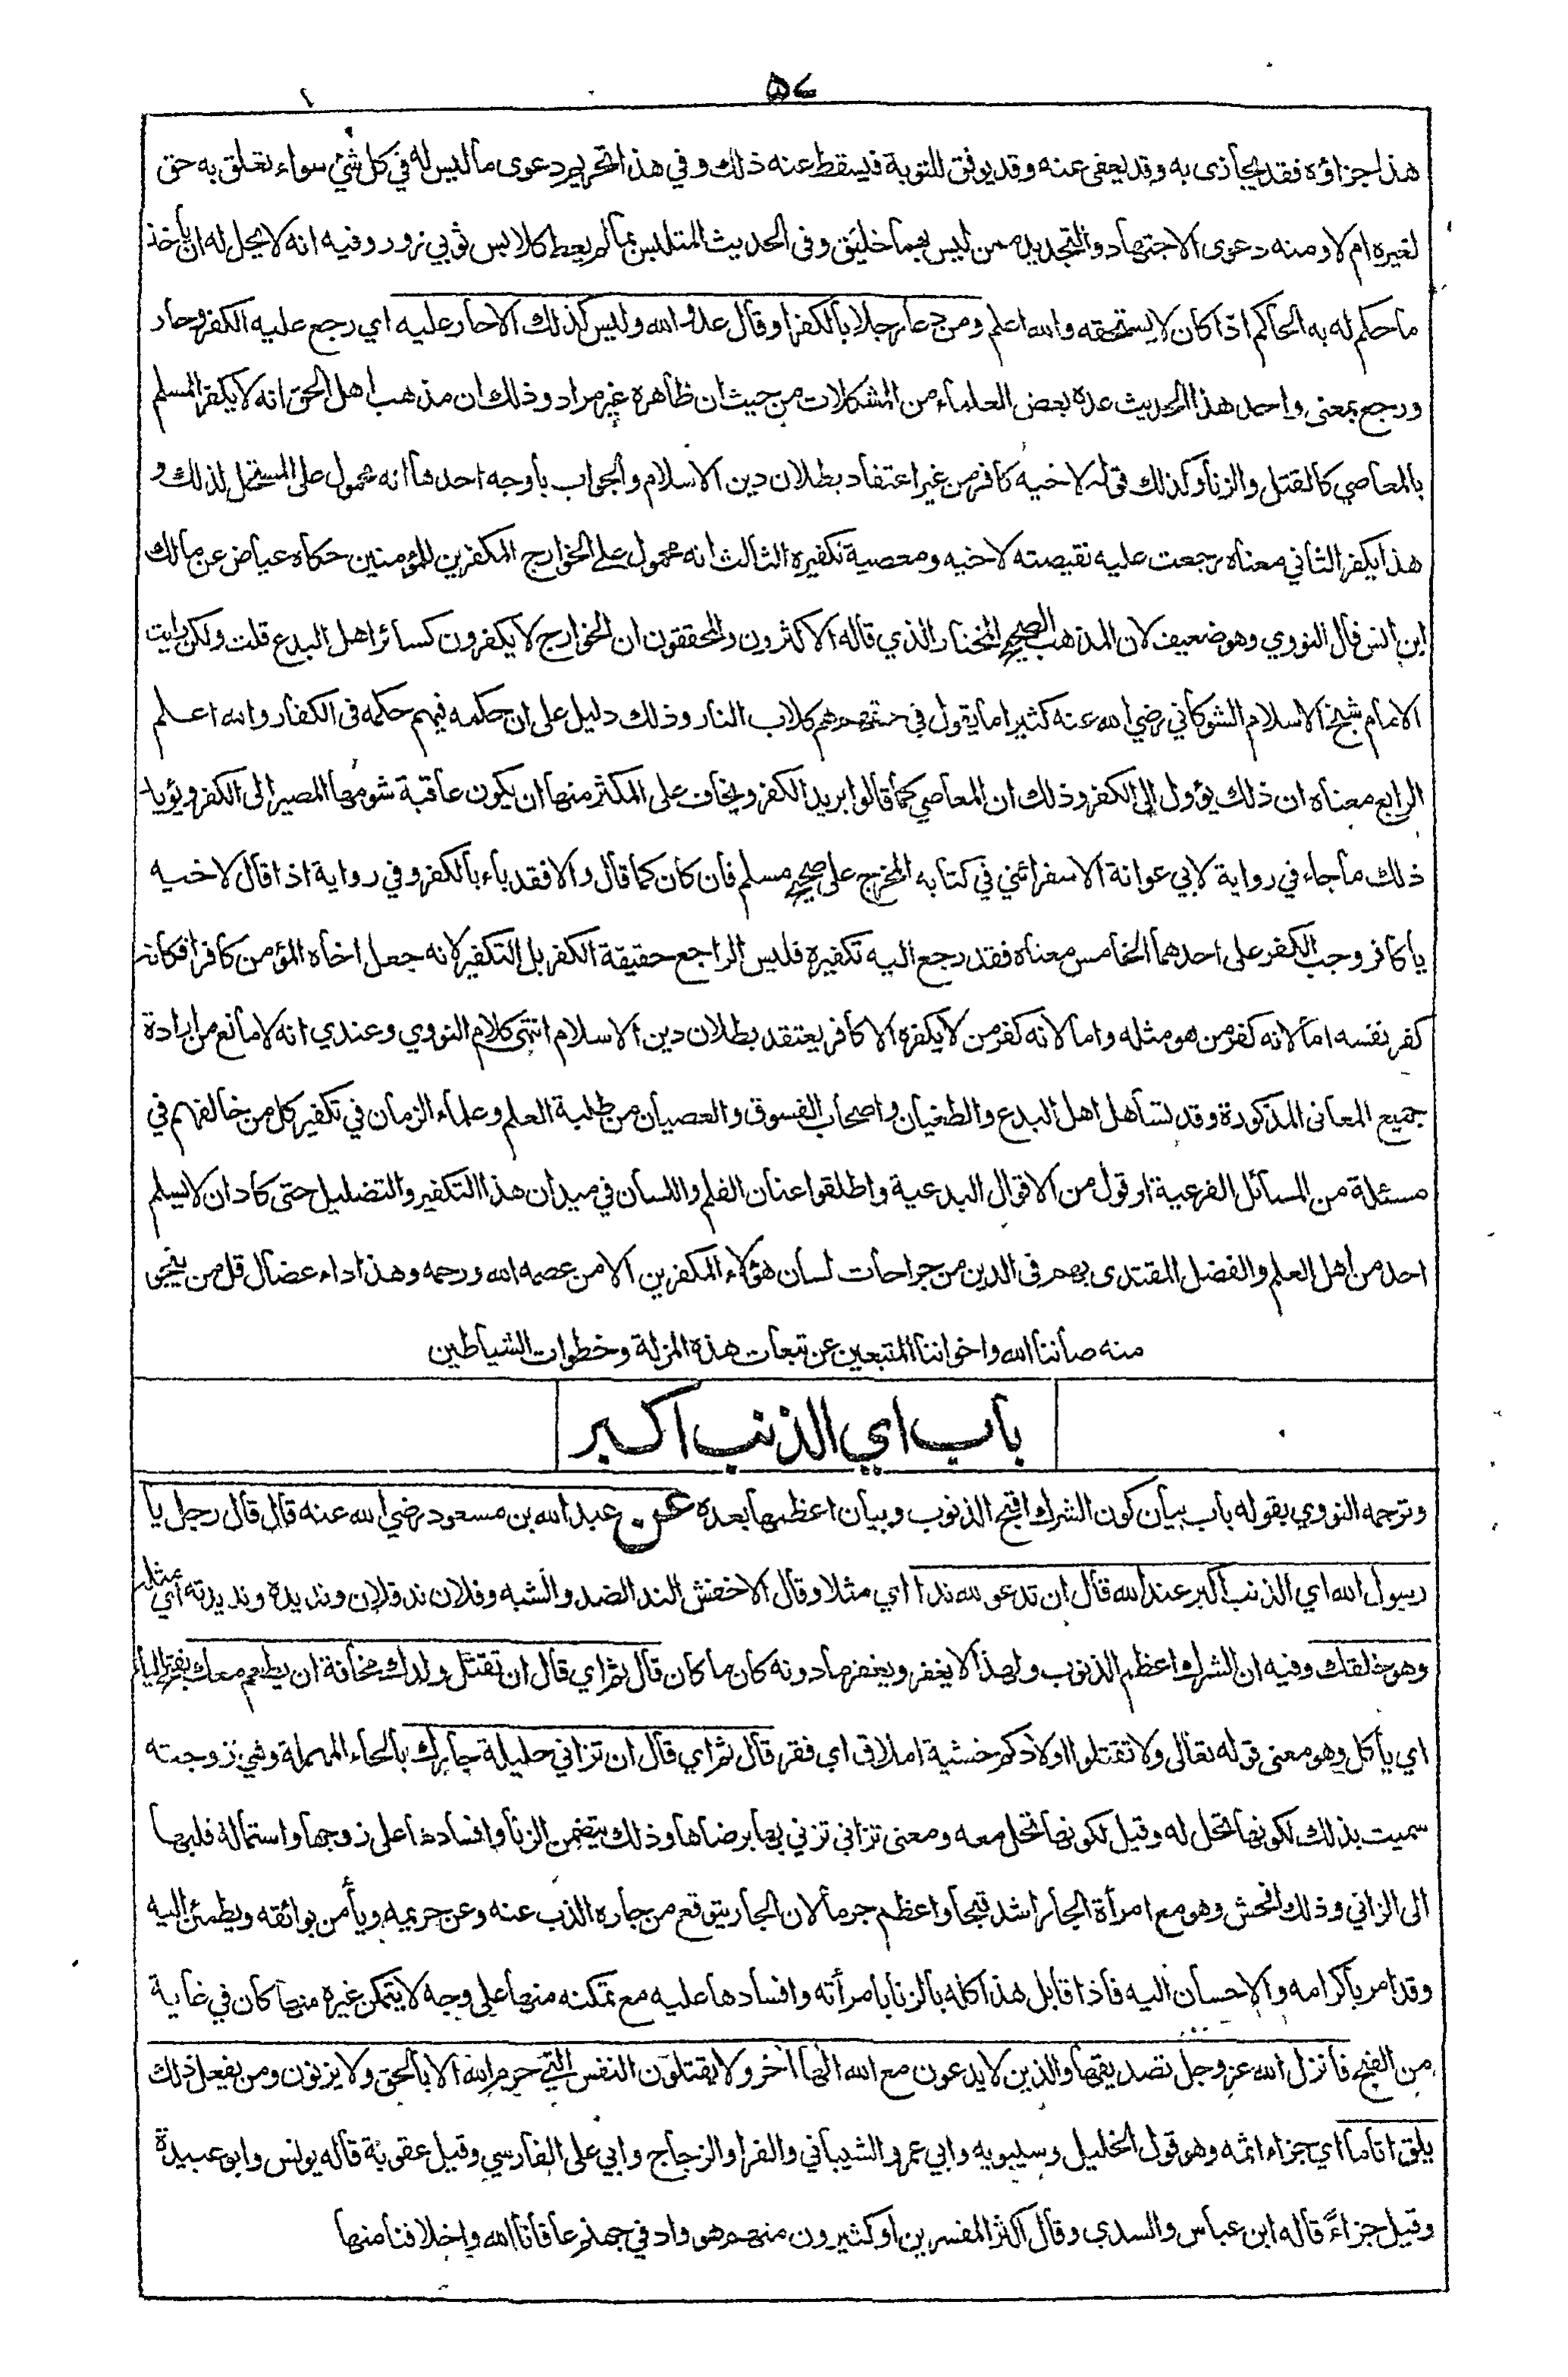 ٥٧
هذا جزاؤه فقد يجازى به وقد يعفى عنه وقد يوفق للتوبة فيسقط عنه ذلك وفي هذا التحرير دعوى ما ليس له في كل شئ سواء تعلق به حق
لغيره ام لا ومنه دعوى الاجتهاد والتجديد ممن ليس بهما خليق وفى الحديث المتلبس بما لم يعط كلابس ثوبي زور وفيه انه لا يحل له ان يأخذ
ما حكم له به الحاكم اذا كان لا يستحقه والله اعلم ومن دعا رجلا بالكفر او قال عدو الله وليس كذلك الا حار عليه اي رجع عليه الكفر وحار
ورجع بمعنى واحد هذا الحديث عده بعض العلماء من المشكلات من حيث ان ظاهره غير مراد وذلك ان مذهب اهل الحق انه لا يكفر المسلم
بالمعاصي كالقتل والزنا وكذلك قوله لاخيه كافر من غير اعتقاد بطلان دين الاسلام والجواب بأوجه احدها انه محمول على المستحل لذلك و
هذا يكفر الثاني معناه رجعت عليه نقيصته لاخيه ومعصية تكفيره الثالث انه محمول على الخوارج المكفرين للمؤمنين حكاه عياض عن مالك
ابن انس قال النووي وهو ضعيف لان المذهب الصحيح المختار الذي قاله الاكثرون والمحققون ان الخوارج لا يكفرون كسائر اهل البدع قلت ولكن رايت
الامام شيخ الاسلام الشوكاني رضي الله عنه كثيرا ما يقول في حقهم هم كلاب النار وذلك دليل على ان حكمه فيهم حكمه فى الكفار والله اعلم
الرابع معناه ان ذلك يؤول الى الكفر وذلك ان المعاصي كما قالوا بريد الكفر ويخاف على المكثر منها ان يكون عاقبة شومها المصير الى الكفر ويؤيد
ذلك ما جاء في رواية لابي عوانة الاسفرائني في كتابه المخرج على صحيح مسلم فان كان كما قال والا فقد باء بالكفر وفي رواية اذا قال لاخيه
يا كافر وجب الكفر على احدهما الخامس معناه فقد رجع اليه تكفيره فليس الراجع حقيقة الكفر بل التكفير لانه جعل اخاه المؤمن كافرا فكانه
كفر نفسه اما لانه كفر من هو مثله واما لانه كفر من لا يكفره الا كافر يعتقد بطلان دين الاسلام انتهى كلام النووي وعندي انه لا مانع من ارادة
جميع المعانى المذكورة وقد تساهل اهل البدع والطغيان واصحاب الفسوق والعصيان من طلبة العلم وعلماء الزمان في تكفير كل من خالفهم في
مسئلة من المسائل الفرعية او قول من الاقوال البدعية واطلقوا عنان القلم واللسان في ميدان هذا التكفير والتضليل حتى كاد ان لا يسلم
احد من اهل العلم والفضل المقتدى بهم فى الدين من جراحات لسان هؤلاء المكفرين الا من عصمه الله ورحمه وهذا داء عضال قل من ينجو
منه صاننا الله واخواننا المتبعين عن تبعات هذه المزلة وخطوات الشياطين
باب اي الذنب اكبر
وترجمه النووي بقوله باب بيان كون الشرك اقبح الذنوب وبيان اعظمها بعده عن عبد الله بن مسعود رضي الله عنه قال قال رجل يا
رسول الله اي الذنب اكبر عند الله قال ان تدعو لله ندا اي مثلا وقال الاخفش الند الضد والشبه وفلان ند فلان ونديده ونديدته اي مثله
وهو خلقك وفيه ان الشرك اعظم الذنوب ولهذا لا يغفر ويغفر ما دونه كان ما كان قال ثم اي قال ان تقتل ولدك مخافة ان يطعم معك بفتح الياء
اي يأكل وهو معنى قوله تعالى ولا تقتلوا اولادكم خشية املاق اي فقر قال ثم اي قال ان تزاني حليلة جارك بالحاء المهملة وهي زوجته
سميت بذلك لكونها تحل له وقيل لكونها تحل معه ومعنى تزاني تزني بها برضاها وذلك يتضمن الزنا وافسادها على زوجها واستمالة قلبها
الى الزاني وذلك افحش وهو مع امرأة الجار اشد قبحا واعظم جرما لان الجار يتوقع من جاره الذب عنه وعن حريمه ويأمن بوائقه ويطمئن اليه
وقد امر باكرامه والاحسان اليه فاذا قابل هذا كله بالزنا بامرأته وافسادها عليه مع تمكنه منها على وجه لا يتمكن غيره منها كان في غاية
من القبح فانزل الله عز وجل تصديقها والذين لا يدعون مع الله الها اخر ولا يقتلون النفس التي حرم الله الا بالحق ولا يزنون ومن يفعل ذلك
يلق اثاما اي جزاء اثمه وهو قول الخليل وسيبويه وابي عمرو الشيباني والفرا والزجاج وابي على الفارسي وقيل عقوبة قاله يونس وابو عبيدة
وقيل جزاءً قاله ابن عباس والسدي وقال اكثر المفسرين او كثيرون منهم هو واد في جهنم عافانا الله واخلافنا منها